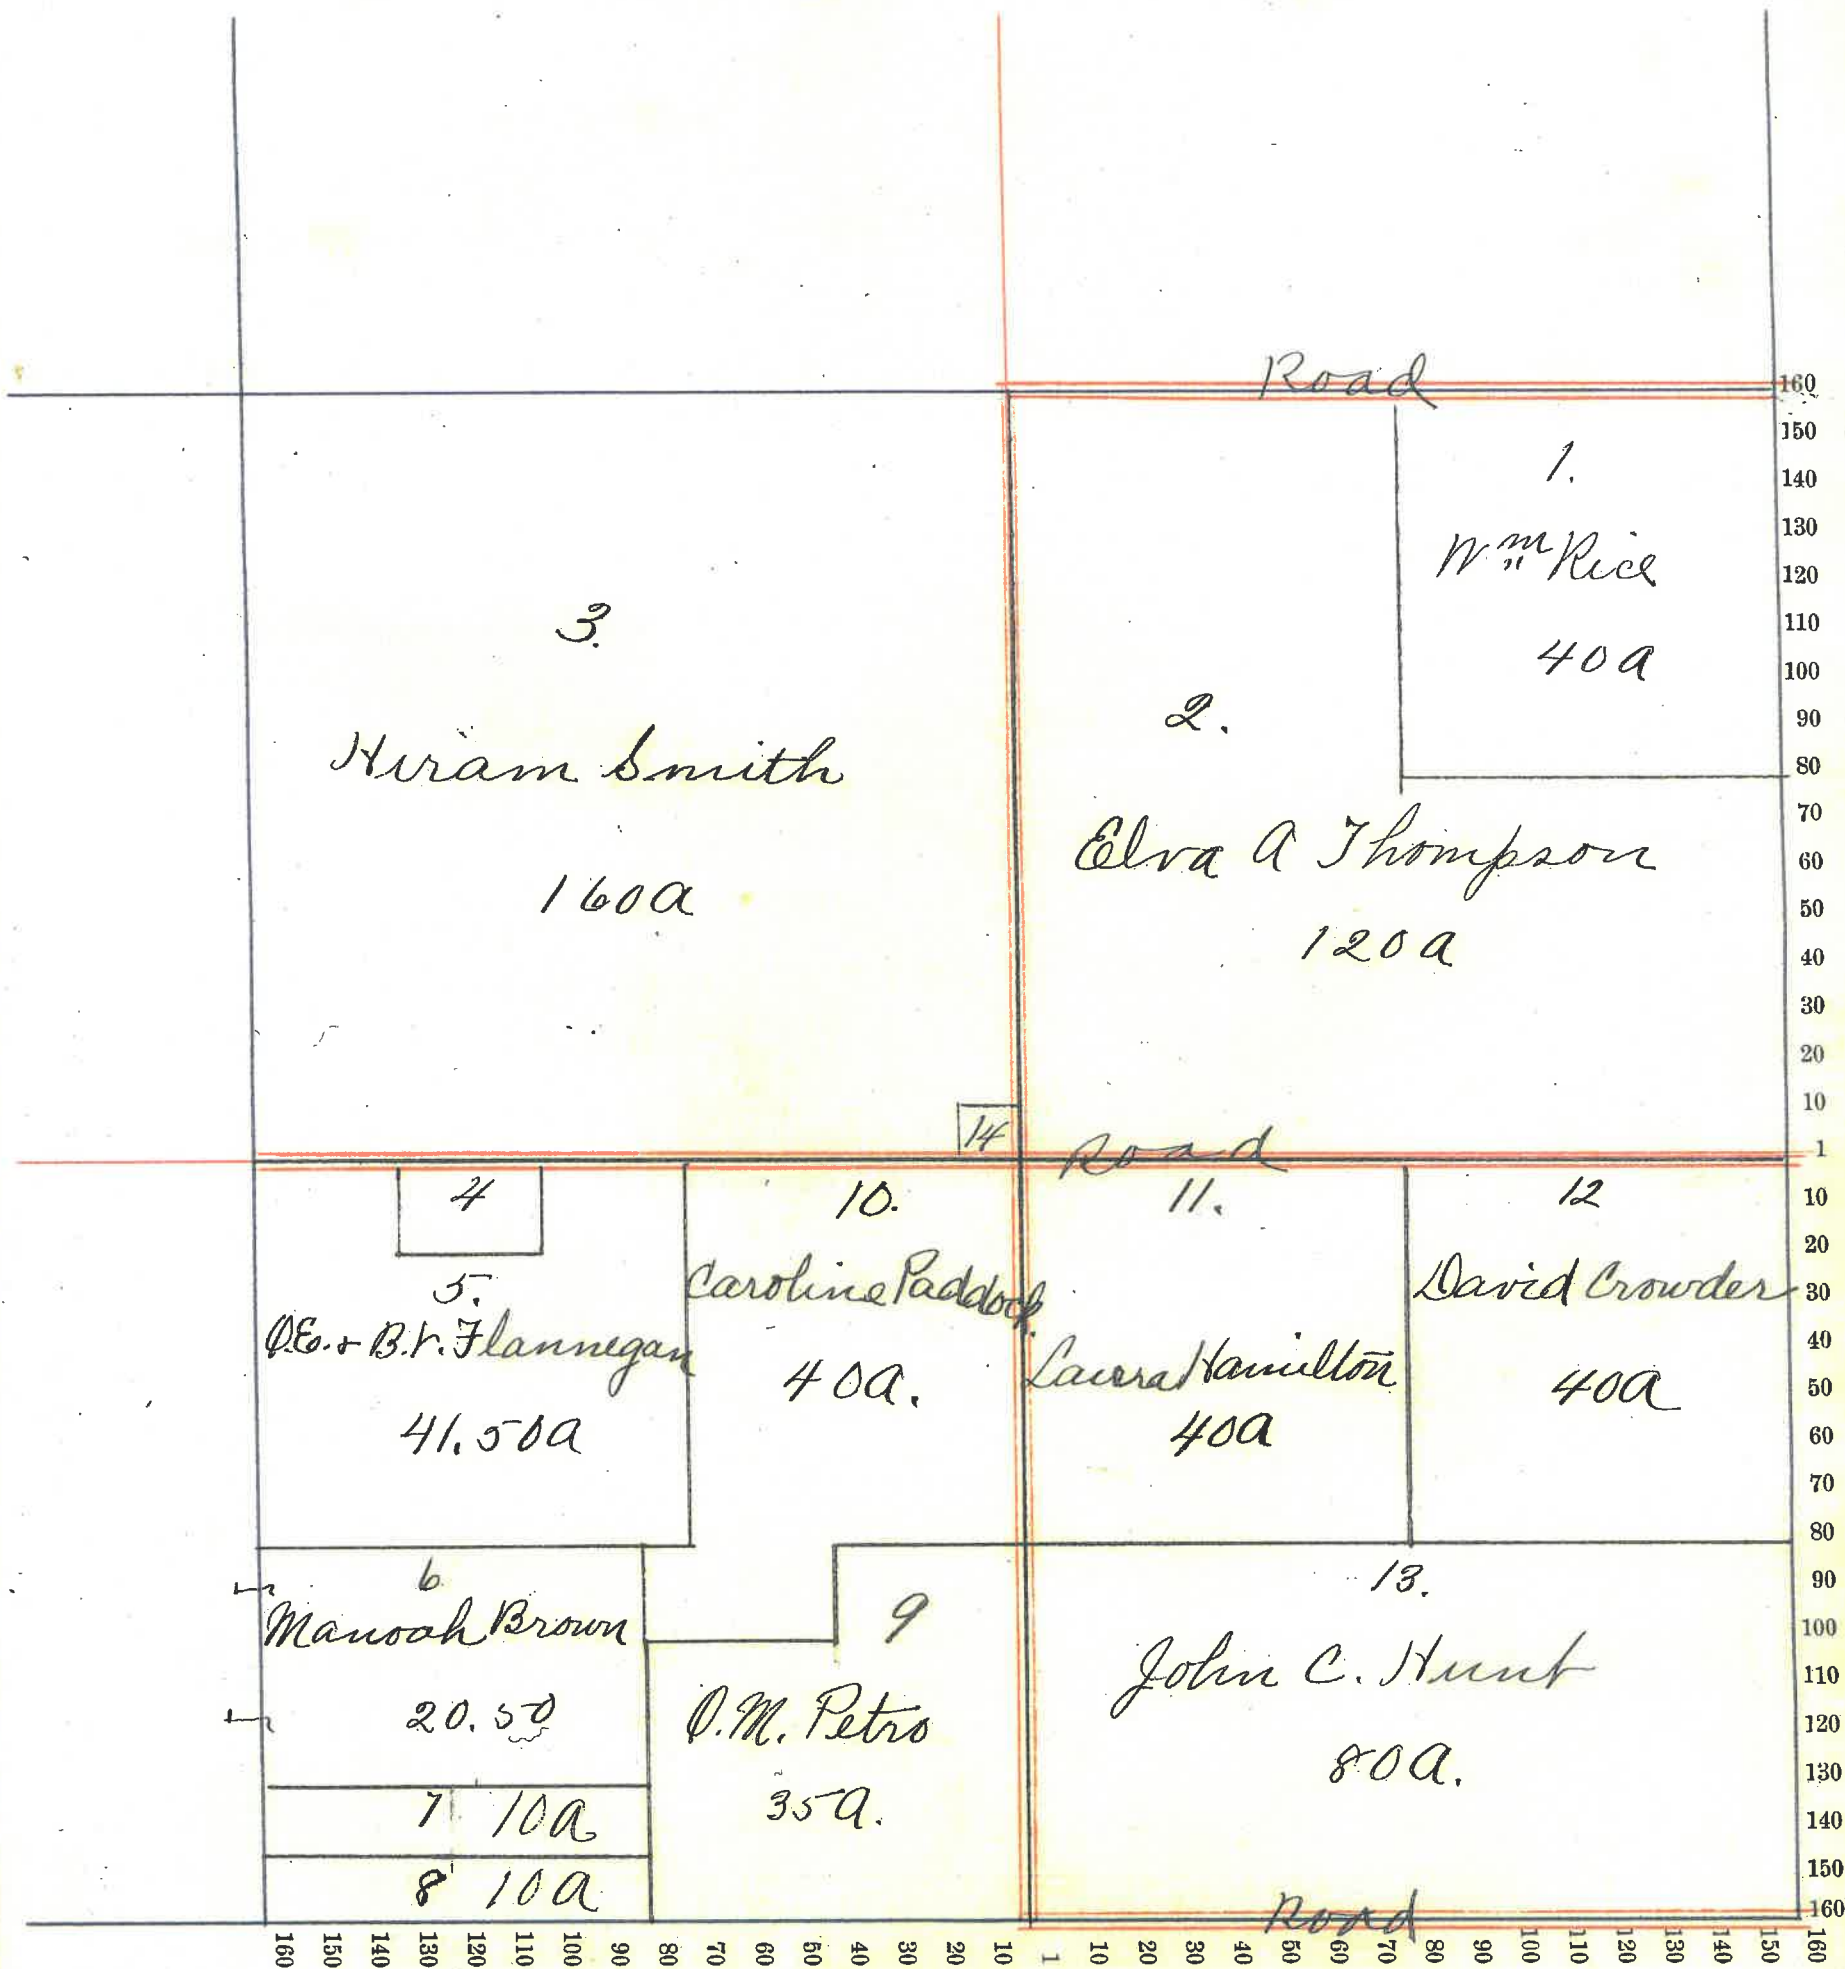 Road
1.
Wm Rice
40a
2.
Elva A Thompson
120a
3.
Hiram Smith
160a
14
Road
4
5.
O.E. + B.V. Flannegan
41.50a
10.
Caroline Paddock
40a.
11.
Laura Hamilton
40a
12
David Crowder
40a
6
Manoah Brown
20.50
7 10a
8 10a
9
O.M. Petro
35a.
13.
John C. Hunt
80a.
Road
160
150
140
130
120
110
100
90
80
70
60
50
40
30
20
10
1
10
20
30
40
50
60
70
80
90
100
110
120
130
140
150
160
160 150 140 130 120 110 100 90 80 70 60 50 40 30 20 10 1 10 20 30 40 50 60 70 80 90 100 110 120 130 140 150 160